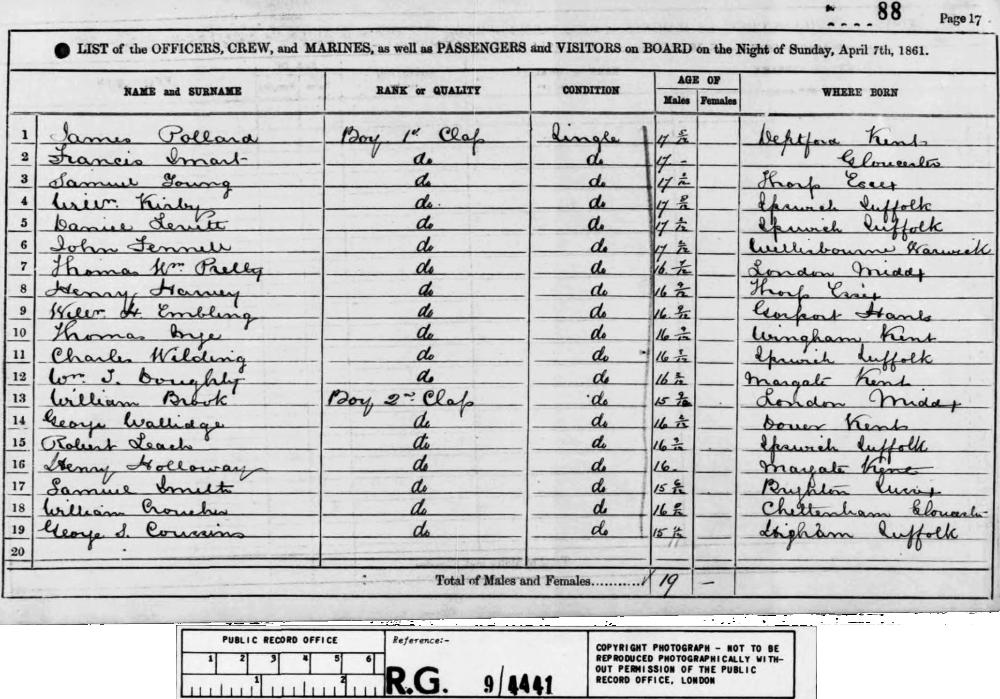 88
Page 17
LIST of the OFFICERS, CREW, and MARINES, as well as PASSENGERS and VISITORS on BOARD on the Night of Sunday, April 7th, 1861.
NAME and SURNAME RANK or QUALITY CONDITION AGE OF WHERE BORN
Males Females
1 James Pollard Boy 1st Class Single 17 Deptford Kent
2 Francis Smart do do 17 - Gloucester
3 Samuel Young do do 17 Thorp Essex
4 Kirby do do 17 Ipswich Suffolk
5 Daniel Levitt do do 17 Ipswich Suffolk
6 John Fennell do do 17 Warwick
7 Thomas Wm Pretty do do 16 7/12 London Middx
8 Henry Harvey do do 16 9/12 Thorp Essex
9 H. Embling do do 16 Gosport Hants
10 Thomas do do 16 Wingham Kent
11 Charles Wilding do do 16 Ipswich Suffolk
12 Wm. J. Doughty do do 16 Margate Kent
13 William Brook Boy 2nd Class do 15 London Middx
14 George Wallidge do do 16 Dover Kent
15 Robert Leach do do 16 Ipswich Suffolk
16 Henry Holloway do do 16. Margate Kent
17 Samuel Smith do do 15 Brighton Sussex
18 William Croucher do do 16 Cheltenham Gloucester
19 George S. Coussins do do 15 Higham Suffolk
20
Total of Males and Females............ 19 -
PUBLIC RECORD OFFICE
1 2 3 4 5 6
1 2
Reference:-
R.G. 9/4441
COPYRIGHT PHOTOGRAPH - NOT TO BE
REPRODUCED PHOTOGRAPHICALLY WITH-
OUT PERMISSION OF THE PUBLIC
RECORD OFFICE, LONDON